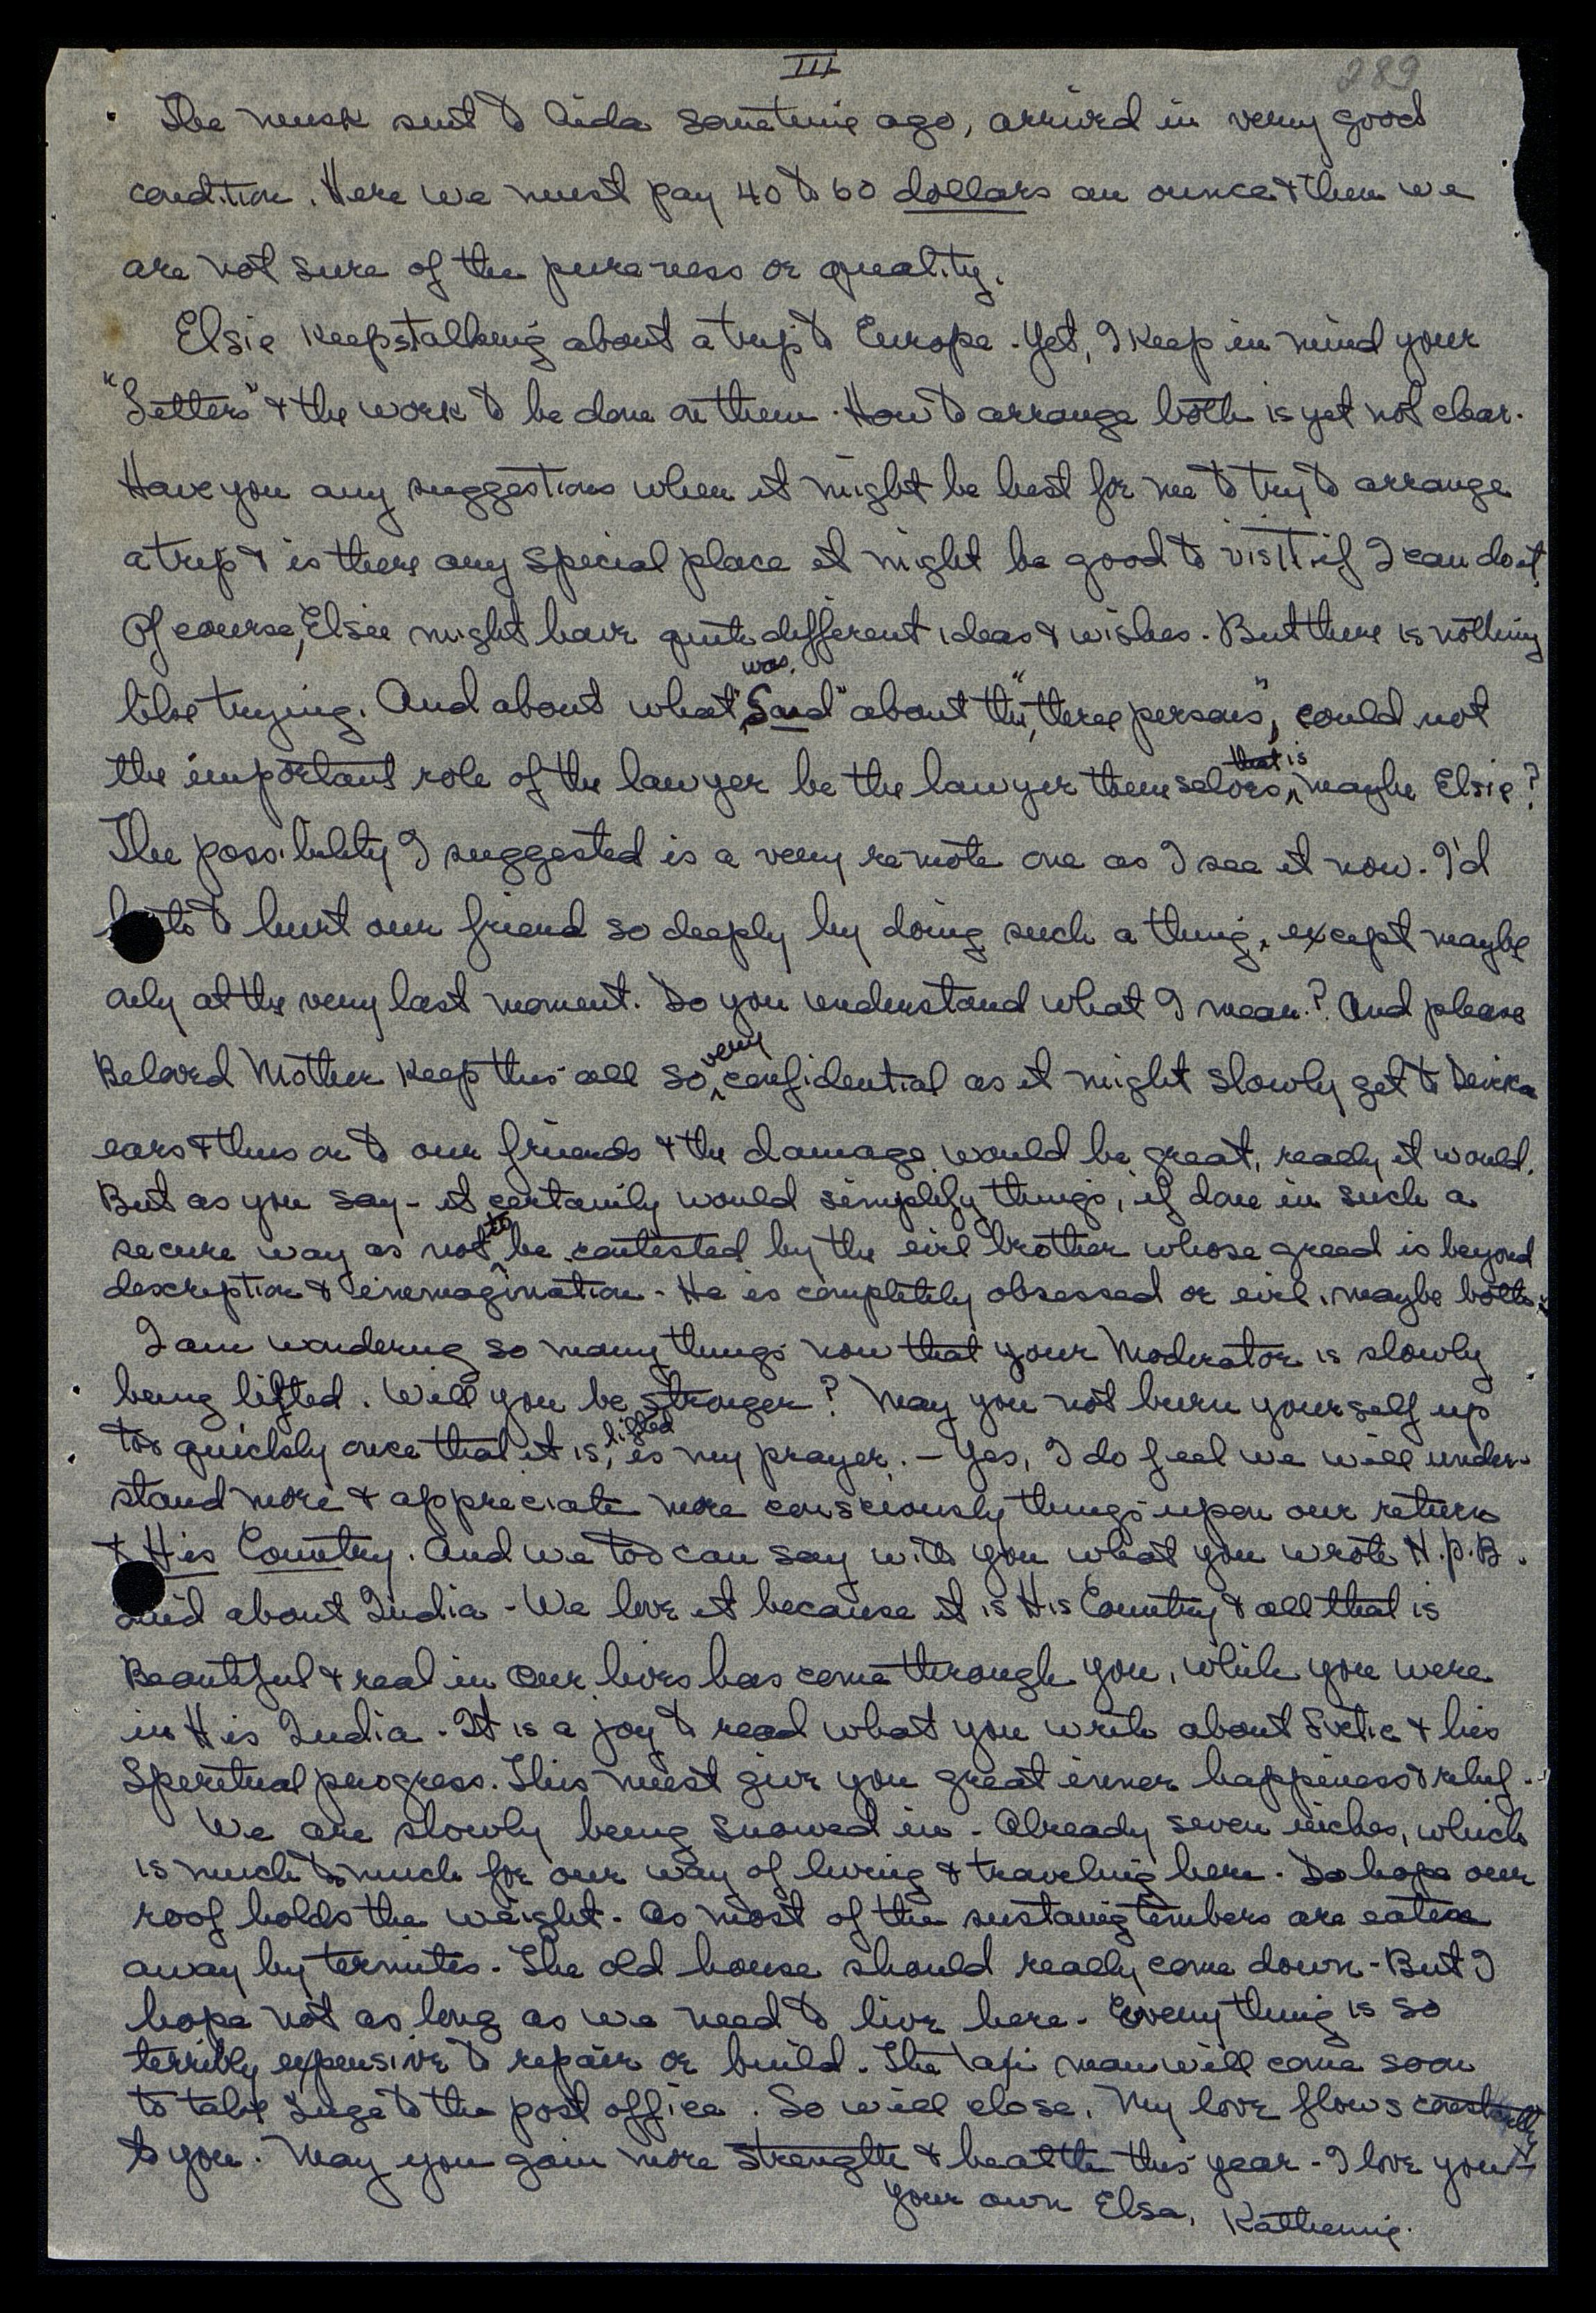 III
289
The musk sent to Aida sometime ago, arrived in very good
condition. Here we must pay 40 to 60 dollars an ounce & then we
are not sure of the pureness or quality.
Elsie keeps talking about a trip to Europe. Yet, I keep in mind your
"Letters" & the work to be done on them. How to arrange both is yet not clear.
Have you any suggestions when it might be best for me to try to arrange
a trip & is there any special place it might be good to visit if I can do it.
Of course, Elsie might have quite different ideas & wishes. But there is nothing
like trying. And about what was "Said" about the "three persons", could not
the important role of the lawyer be the lawyer themselves, that is maybe Elsie?
The possibility I suggested is a very remote one as I see it now. I'd
hate to hurt our friend so deeply by doing such a thing, except maybe
only at the very last moment. Do you understand what I mean? And please
Beloved Mother keep this all so very confidential as it might slowly get to Devika
ears & thus on to our friends & the damage would be great, really it would.
But as you say - it certainly would simplify things, if done in such a
secure way as not to be contested by the evil brother whose greed is beyond
description & inimagination - He is completely obsessed or evil, maybe both.
I am wondering so many things now that your Moderator is slowly
being lifted. Will you be stronger? May you not burn yourself up
too quickly once that it is, lifted is my prayer. - Yes, I do feel we will under-
stand more & appreciate more consciously things upon our return
to His Country. And we too can say with you what you wrote H.P.B.
said about India - We love it because it is His Country & all that is
Beautiful & real in our lives has come through you, while you were
in His India. It is a joy to read what you write about Svetic & his
Speritual progress. This must give you great inner happiness & relief.
We are slowly being snowed in. Already seven inches, which
is much to much for our way of living & traveling here. Do hope our
roof holds the weight. As most of the sustaing timbers are eaten
away by termites. The old house should really come down - But I
hope not as long as we need to live here. Everything is so
terribly expensive to repair or build. The taxi man will come soon
to take Inge to the post office. So will close. My love flows constantly
to you. May you gain more strength & health this year - I love you -
your own Elsa, Katherine.